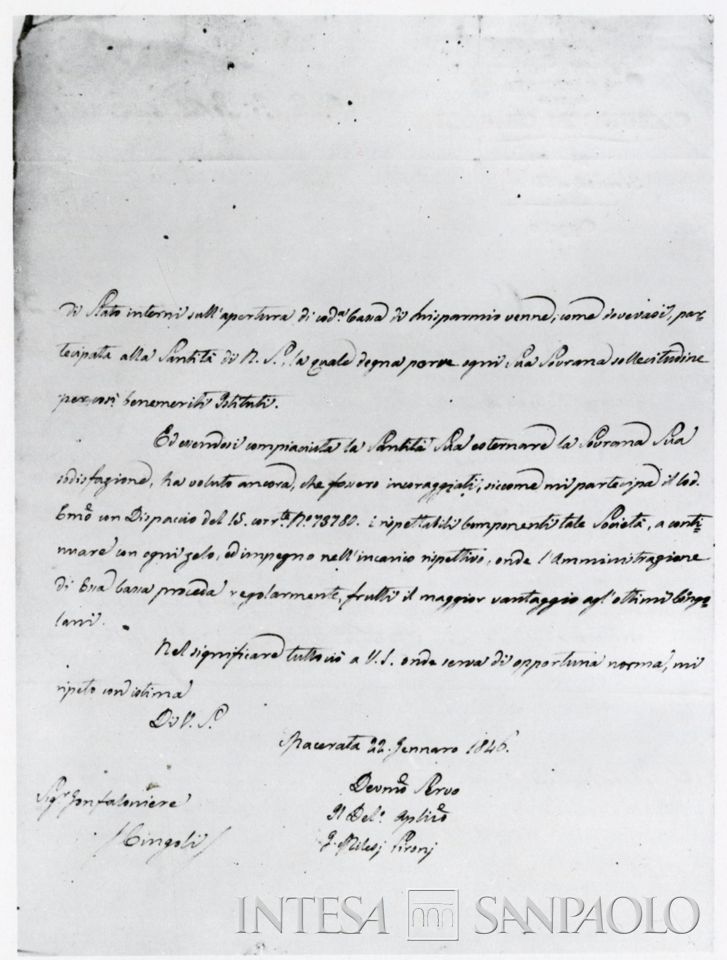 di Stato interni sull'apertura di cod.a Cassa di Risparmio venne, come dovevasi, par-
tecipata alla Santità di N. S., la quale degna porre ogni Sua Sovrana sollecitudine
per così benemeriti Istituti.
Ed essendosi compiaciuta la Santità Sua esternare la Sovrana Sua
sodisfazione, ha voluto ancora, che fossero incoraggiati, siccome mi partecipa il lod.
Emo con Dispaccio del 15. corrte No 73780. i rispettabili Componenti tale Società, a conti-
nuare con ogni zelo, ed impegno nell'incarico rispettivo, onde l'Amministrazione
di Essa Cassa proceda regolarmente, frutti il maggior vantaggio agl'ottimi Cingo-
lani.
Nel significare tuttociò a V. S. onde serva di opportuna norma, mi
ripeto con istima
Di V. S.
Macerata 22. Gennaro 1846.
Devmo Servo
Il Delo Aplico
Sigr Gonfaloniere
/ Cingoli /
INTESA SANPAOLO